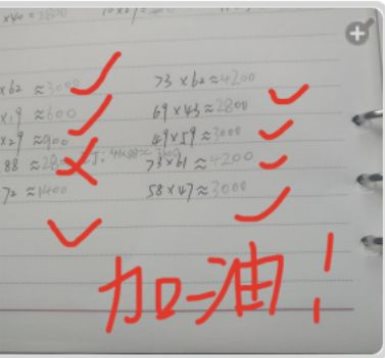 x62 ≈3000 73×62≈4200
x19 ≈600 69×43≈2800
x29≈900 49×59≈3000
88 ≈ 73×61≈4200
72 ≈1400 58×47≈3000
加油!